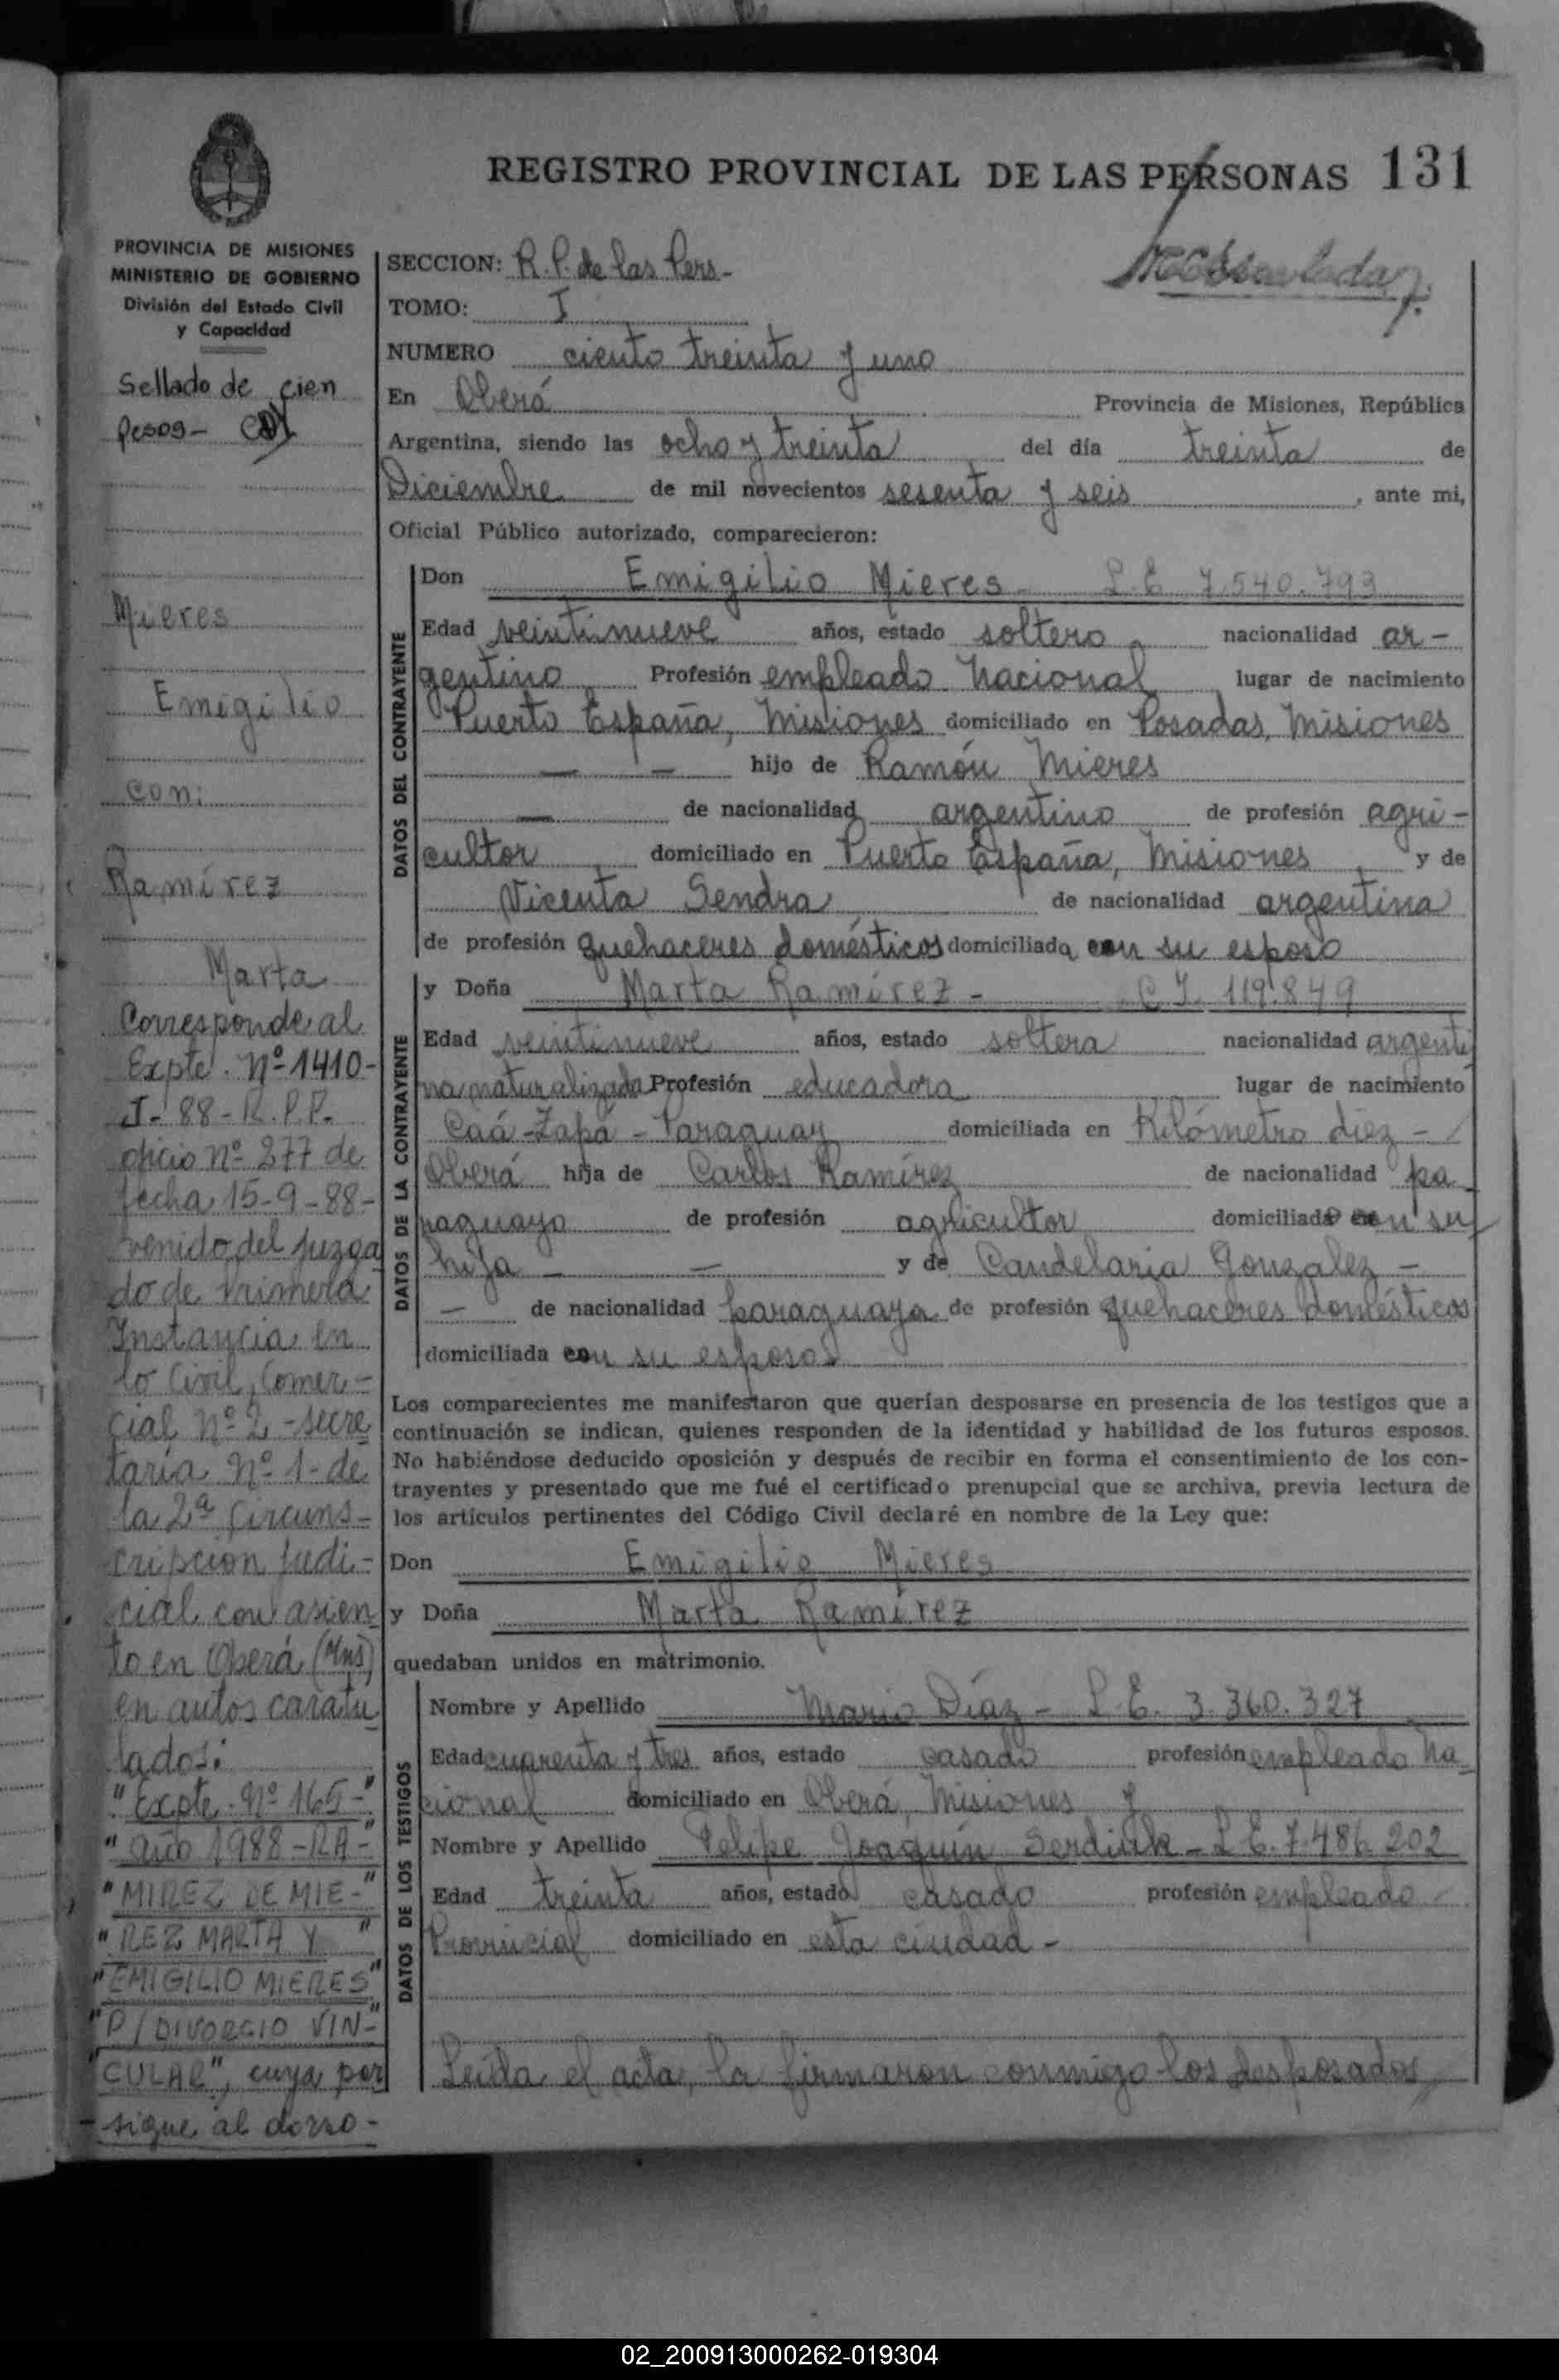 REGISTRO PROVINCIAL DE LAS PERSONAS 131
PROVINCIA DE MISIONES
MINISTERIO DE GOBIERNO
División del Estado Civil
y Capacidad
Sellado de cien
pesos-
Mieres
Emigilio
con:
Ramírez
Marta
Corresponde al
Expte. Nº 1410-
J-88-R.P.P.
oficio nº 277 de
fecha 15-9-88-
venido del juzga
do de Primera
Instancia en
lo Civil, Comer-
cial nº 2 - secre
taría nº 1 - de
la 2ª Circuns-
cripción Judi-
cial con asien
to en Oberá (Mns)
en autos caratu
lados:
"Expte. Nº 165-"
"año 1988-RA-"
"MIREZ DE MIE-"
"REZ MARTA Y "
"EMIGILIO MIERES"
"P/DIVORCIO VIN-"
"CULAR", cuya par
- sigue al dorso -
SECCION: R.P. de las Pers-
TOMO: I
NUMERO ciento treinta y uno
En Oberá Provincia de Misiones, República
Argentina, siendo las ocho y treinta del día treinta de
Diciembre de mil novecientos sesenta y seis, ante mi,
Oficial Público autorizado, comparecieron:
DATOS DEL CONTRAYENTE
Don Emigilio Mieres- L.E 7.540.793
Edad veintinueve años, estado soltero nacionalidad ar-
gentino Profesión empleado Nacional lugar de nacimiento
Puerto España, Misiones domiciliado en Posadas, Misiones
— — hijo de Ramón Mieres
— de nacionalidad argentino de profesión agri-
cultor domiciliado en Puerto España, Misiones y de
Vicenta Sendra de nacionalidad argentina
de profesión quehaceres domésticos domiciliada con su esposo
DATOS DE LA CONTRAYENTE
y Doña Marta Ramírez - C.I. 119.849
Edad veintinueve años, estado soltera nacionalidad argenti
na naturalizada Profesión educadora lugar de nacimiento
Caá-Zapá-Paraguay domiciliada en Kilómetro diez -
Oberá hija de Carlos Ramírez de nacionalidad pa
raguayo de profesión agricultor domiciliado con su
hija - — y de Candelaria Gonzalez -
— de nacionalidad paraguaya de profesión quehaceres domésticos
domiciliada con su esposo
Los comparecientes me manifestaron que querían desposarse en presencia de los testigos que a
continuación se indican, quienes responden de la identidad y habilidad de los futuros esposos.
No habiéndose deducido oposición y después de recibir en forma el consentimiento de los con-
trayentes y presentado que me fué el certificado prenupcial que se archiva, previa lectura de
los artículos pertinentes del Código Civil declaré en nombre de la Ley que:
Don Emigilio Mieres
y Doña Marta Ramírez
quedaban unidos en matrimonio.
DATOS DE LOS TESTIGOS
Nombre y Apellido Mario Díaz - L.E. 3.360.327
Edad cuarenta y tres años, estado casado profesión empleado Na
cional domiciliado en Oberá, Misiones y
Nombre y Apellido Felipe Joaquín Serdiuk - L.E. 7.486.202
Edad treinta años, estado casado profesión empleado
Provincial domiciliado en esta ciudad -
Leída el acta, la firmaron conmigo los desposados
02_200913000262-019304